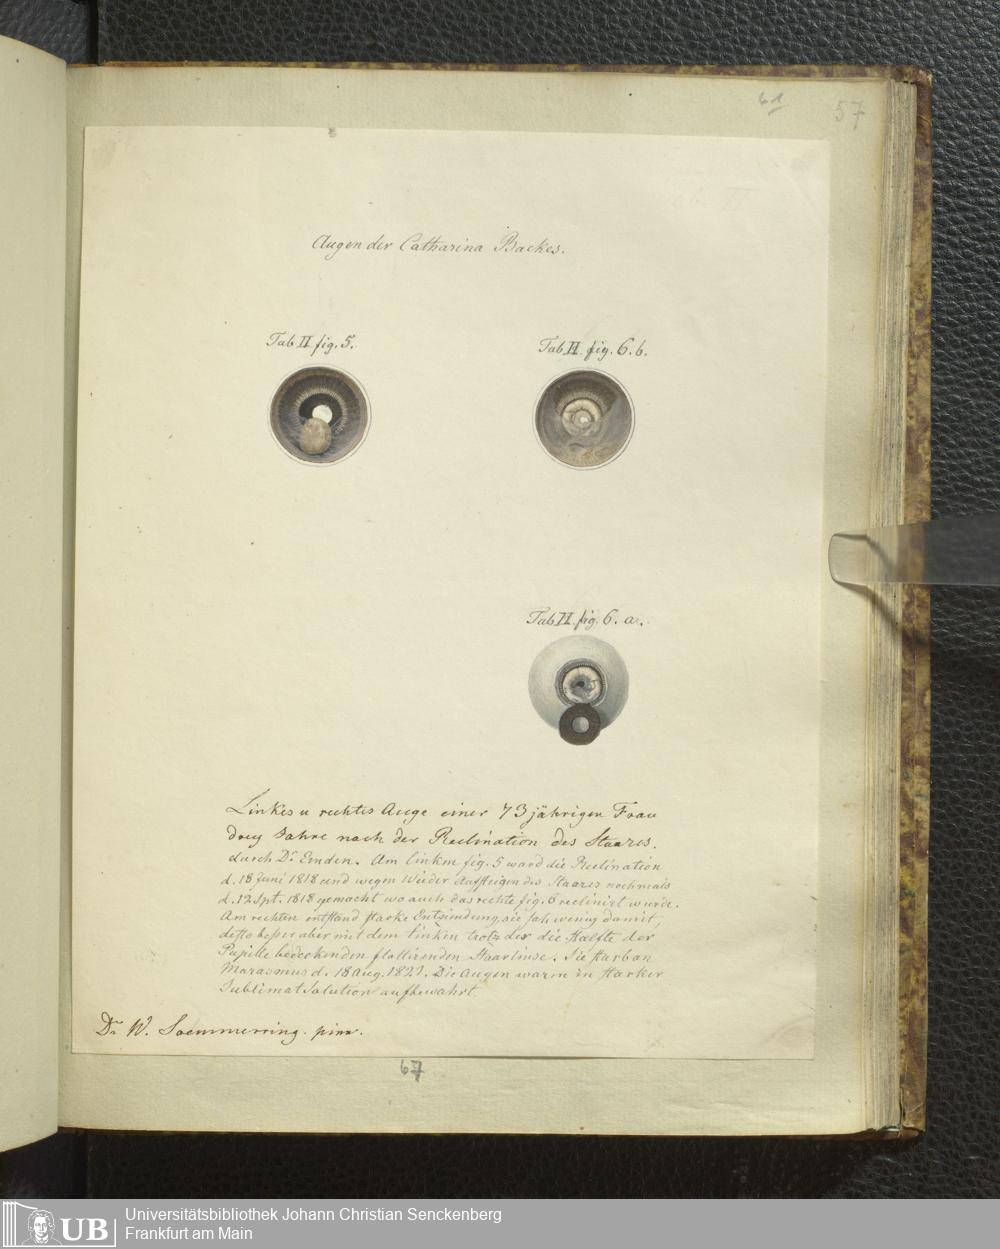 61
57
Augen der Catharina Backes.
Tab II fig. 5.
Tab II. fig. 6. b.
Tab II. fig. 6. a.
Linkes u rechtes Auge einer 73 jährigen Frau
drey Jahre nach der Reclination des Staares.
durch Dr Emden. Am linken fig. 5 ward die Reclination
d. 18 Juni 1818 und wegen Wieder Aufsteigen des Staares nochmals
d. 12 Spt. 1818 gemacht wo auch das rechte fig. 6 reclinirt wurde.
Am rechten entstand starke Entzündung, sie sah wenig damit,
desto besser aber mit dem linken trotz der die Hälfte der
Pupille bedeckenden flottirenden Staarlinse. Sie starb an
Marasmus d. 18 Aug. 1821. Die Augen waren in starker
Sublimat Solution aufbewahrt
Dr W. Soemmerring. pinx.
67
UB
Universitätsbibliothek Johann Christian Senckenberg
Frankfurt am Main